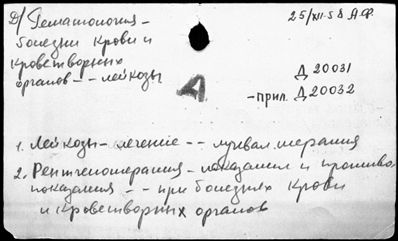 Д/ Гематология -
болезни крови и
кроветворных
органов -- лейкозы
25/XII-58 А.Ф.
А
Д 20031
- прил. Д 20032
1. Лейкозы - лечение -- лучевая терапия
2. Рентгенотерапия - показания и противо
показания -- при болезнях крови
и кроветворных органов